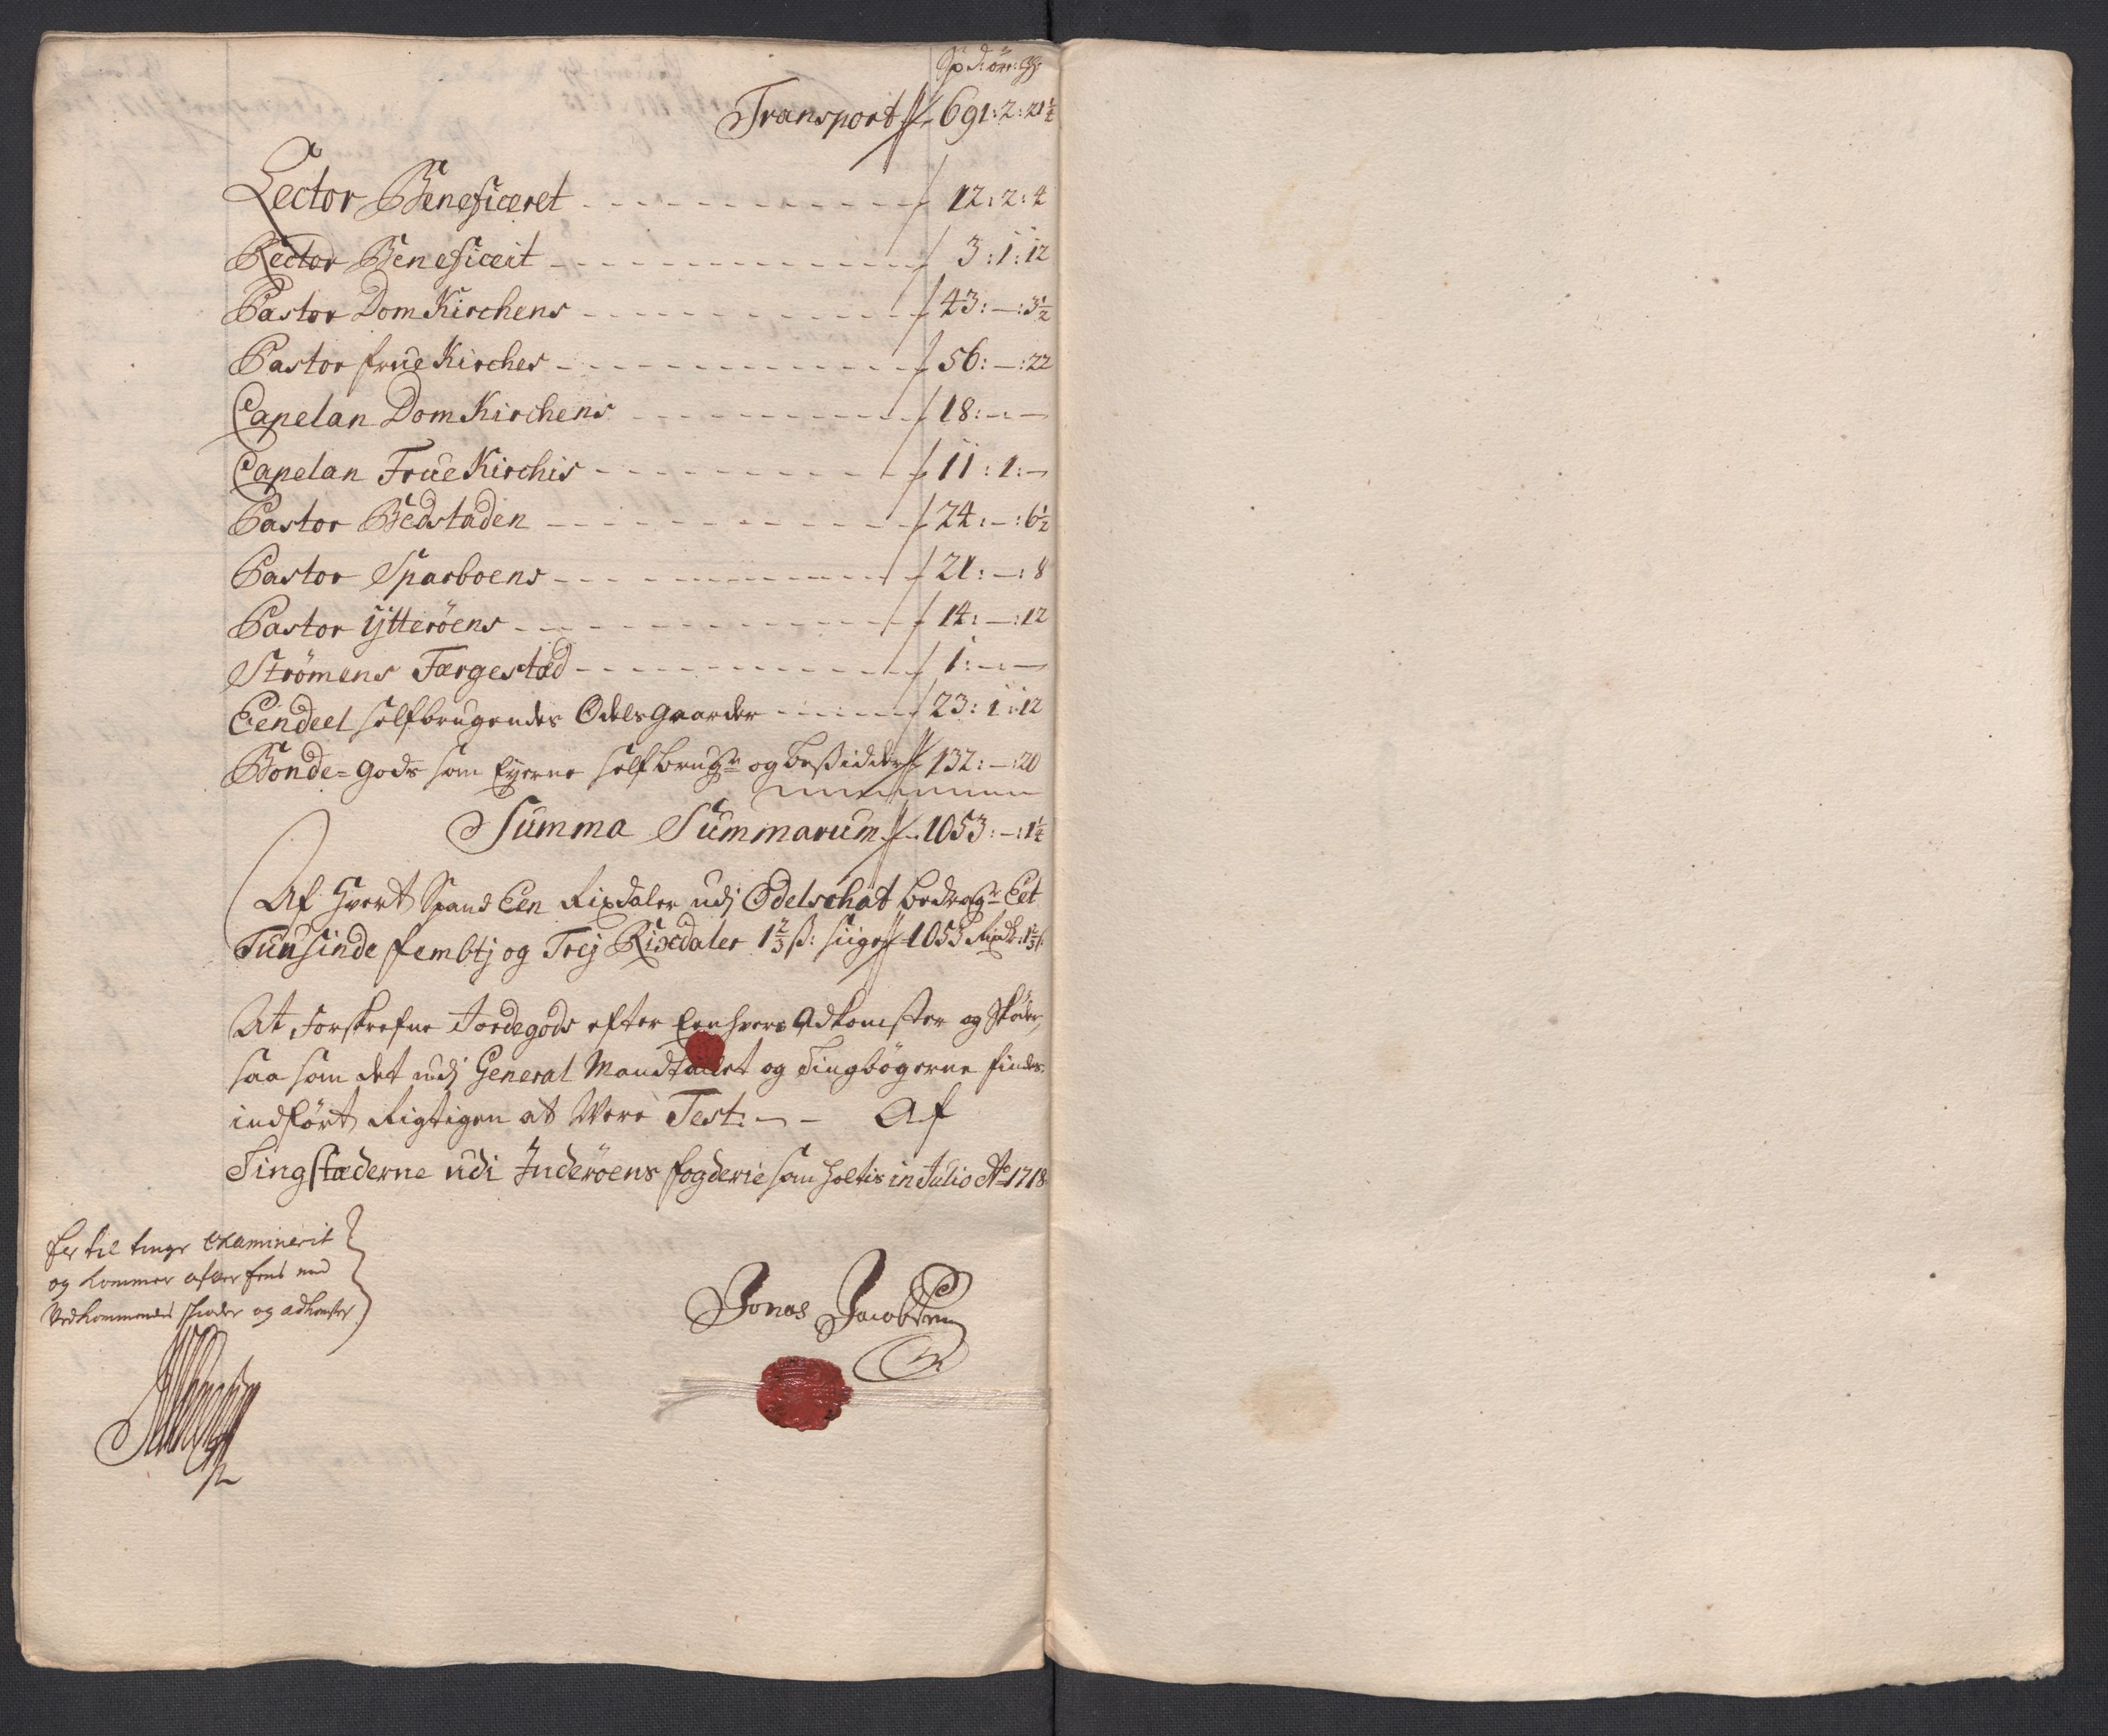 Sp d: ör: 
Transport 691:2:21¼
Lector Beneficeret 12:2:4
Rector Beneficeit 3:1:12
Pastor Dom Kirchens 43:—:3½
Pastor frue Kirches 56:—:22
Capelan Dom Kirchens 18:—:—
Capelan Frue Kirchis 11:1:—
Pastor Bedstaden 24:—:6½
Pastor Sparboens 21:—:8
Pastor ÿtterøens 14:—:12
Strömens Færgestæd 1:—:—
Eendeel selfbrugendes Odelsgaarder 23:1:12
Bonde=gods som Eyerne self brugr og besidder 132:—:20
Summa Summarum 1053:—:1¼
Af Hvert Spand Een Rixdaler udj Odelschat bedragr Eet
Tuusinde fembtj og Trej Rixdaler 1⅔ s: siiger 1053 Rixdlr: 1⅔ s:
At forskrefne Jordegods efter Eenhvers Adkomster og Skøder,
saa som det udj General Mandtallet og Tingbögerne findes
indfört Rigtigen at Were Test: — Af
Tingstæderne udi Inderöens fogderie som holtis in Julio Ao 1718
Er til tinge Examinerit
og kommer ofver Eens med
Vedkommendes skiøder og adkomster
Jonas Jacobsen